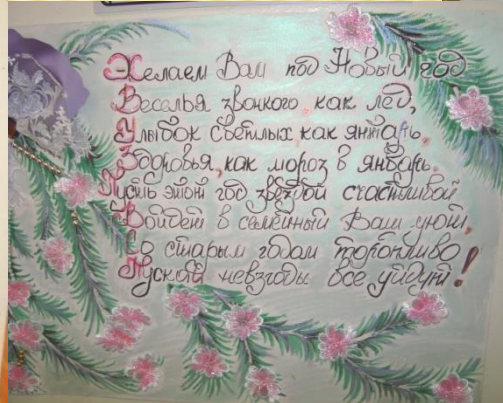 Желаем Вам под Новый год
Веселья звонкого, как лёд,
Улыбок светлых как янтарь,
Здоровья, как мороз в январь.
Пусть этот год звездой счастливой
Войдет в семейный Ваш уют,
Со старым годом торопливо
Пускай невзгоды все уйдут!